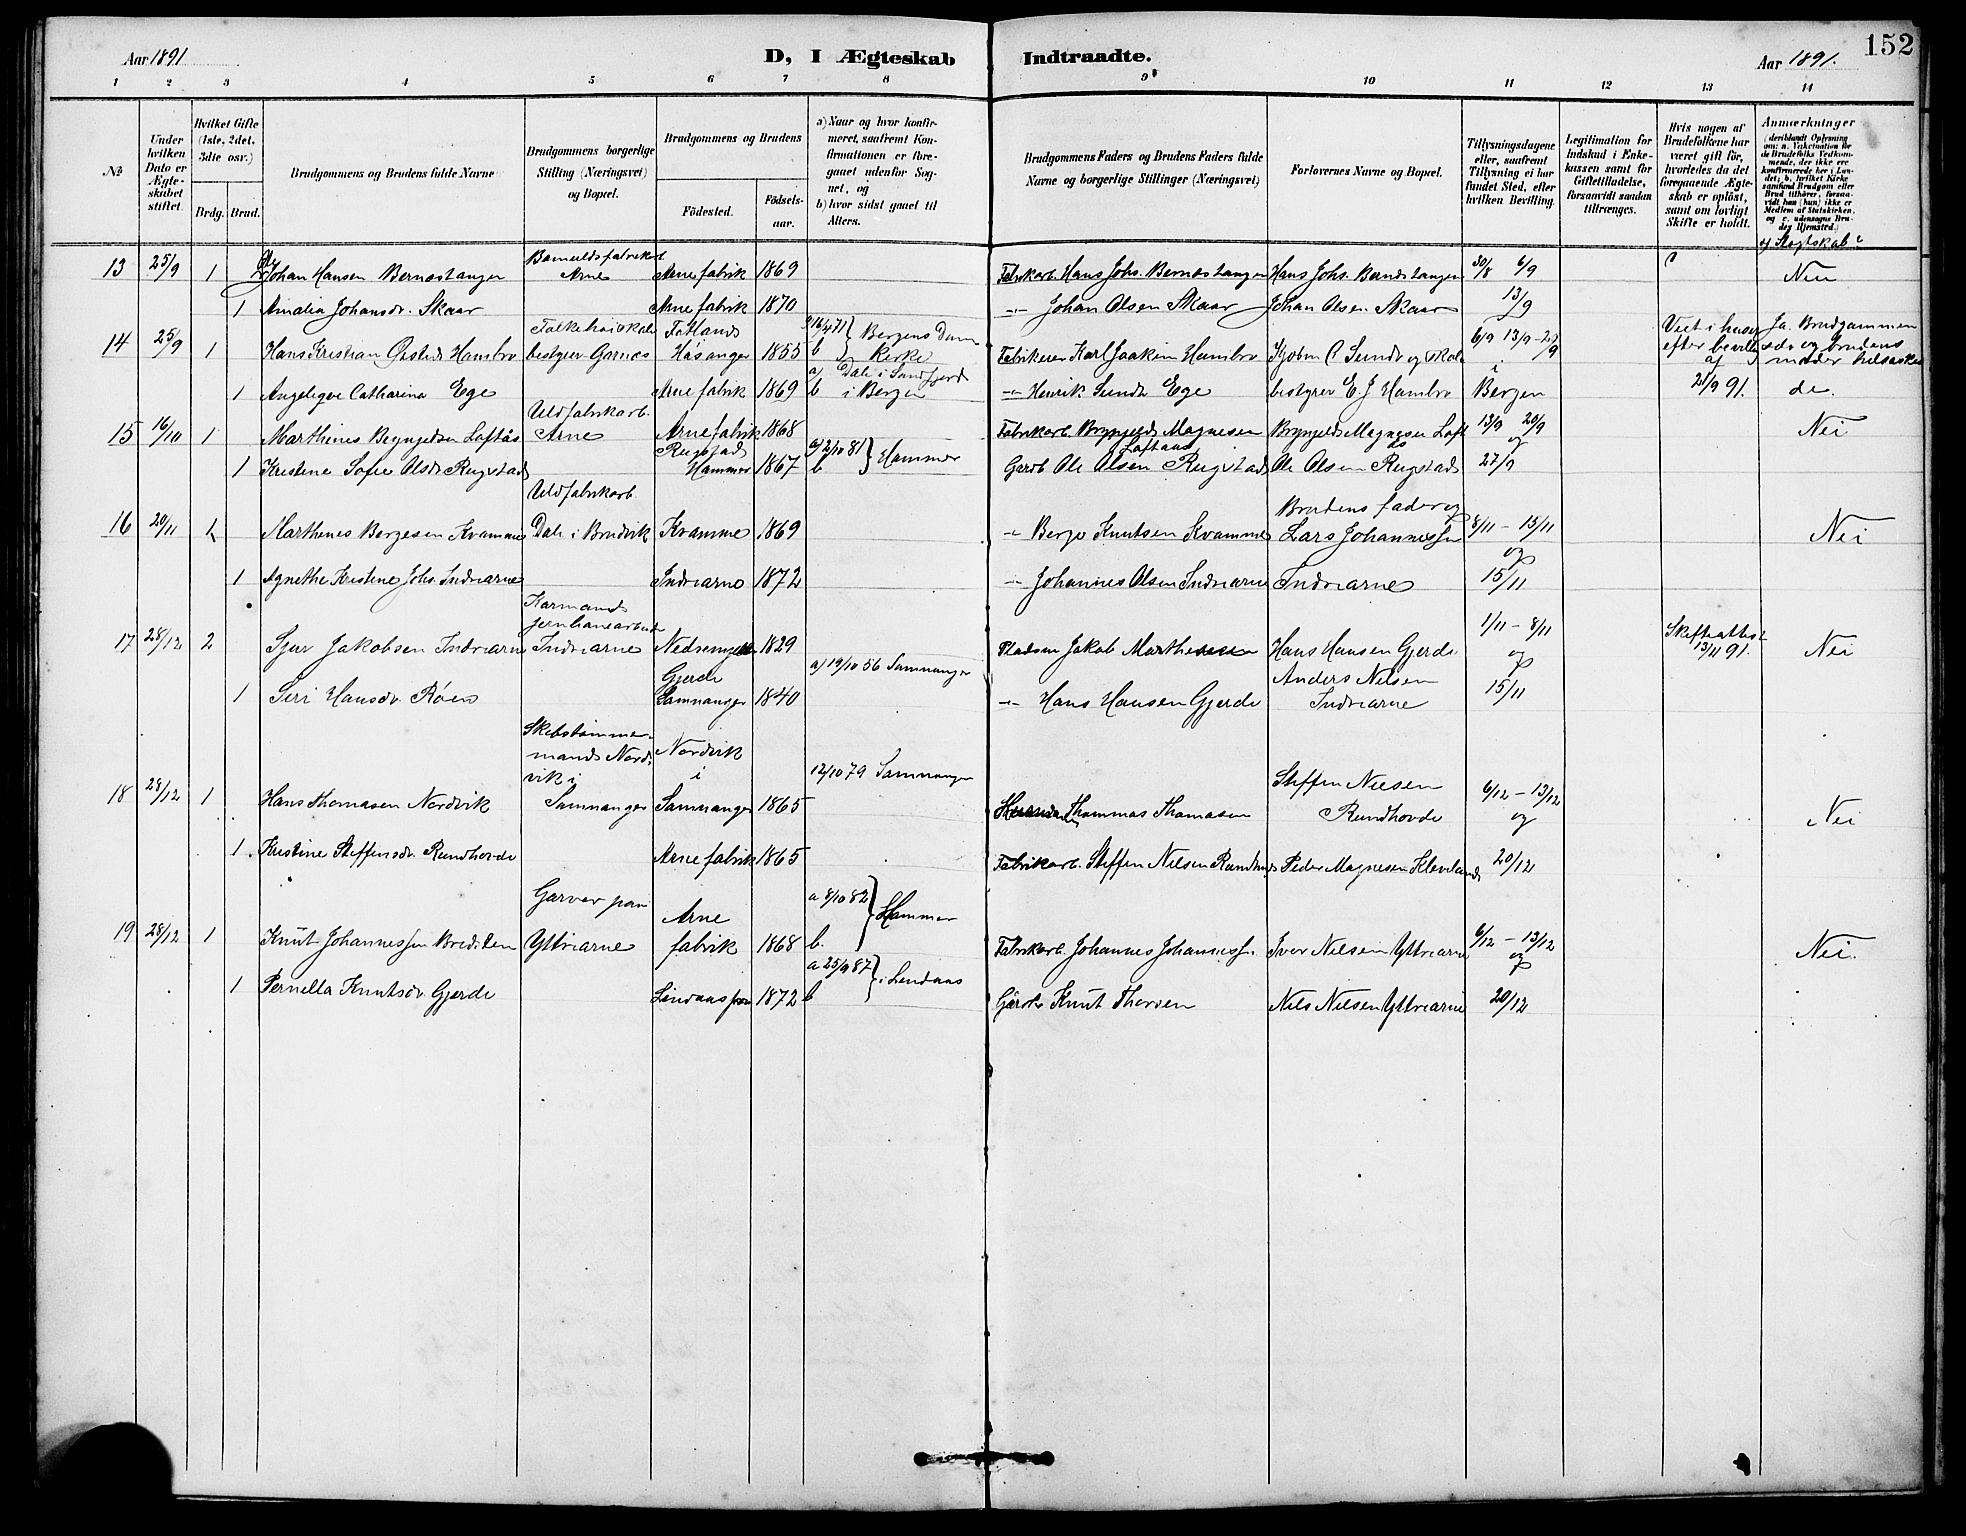 152
Aar 1891
D, I Ægteskab Indtraadte.
Aar 1891.
1 2 3 4 5 6 7 8 9 10 11 12 13 14
No
Under hvilken Dato er Ægteskabet stiftet.
Hvilket Gifte (1ste, 2det, 3die osv.)
Brdg. Brud.
Brudgommens og Brudens fulde Navne
Brudgommens borgerlige Stilling (Næringsvei) og Bopæl.
Brudgommens og Brudens
Födested. Födselsaar.
a) Naar og hvor konfirmeret, saafremt Konfirmationen er foregaaet udenfor Sognet, og
b) hvor sidst gaaet til Alters.
Brudgommens Faders og Brudens Faders fulde Navne og borgerlige Stillinger (Næringsvei)
Forlovernes Navne og Bopæl.
Tillysningsdagene eller, saafremt Tillysning ei har fundet Sted, efter hvilken Bevilling.
Legitimation for Indskud i Enkekassen samt for Giftetilladelse, forsaavidt saadan tiltrænges.
Hvis nogen af Brudefolkene har været gift för, hvorledes da det foregaaende Ægteskab er oplöst, samt om lovligt Skifte er holdt.
Anmærkninger
(deriblandt Oplysning om: a. Vakcination for de Brudefolks Vedkommende, der ikke ere konfirmerede her i Landet; b. hvilket Kirkesamfund Brudgom eller Brud tilhörer, forsaavidt han (hun) ikke er Medlem af Statskirken, og c. udensogns Brudes Hjemsted.)
og Slegtskab
13 25/9 1 Johan Hansen Bernestangen Bomuldsfabrikarb Arne Arne fabrik 1869 Fabrikarb. Hans Johs. Bernestangen Hans Johs. Bernestangen 30/8 6/9 Nei
1 Amalia Johansdr. Skaar Arne fabrik 1870 -"- Johan Olsen Skaar Johan Olsen Skaar 13/9
14 25/9 1 Hans Kristian Ørsted Hambro Folkehøiskole bestyrer Garnes Fotland Hosanger 1855 a) 16/4 71 b Bergens Dom Kirke Fabrikeier Karl Joakim Hambro Kjøbm C Sundt og skole 6/9 13/9 - 20/9 Viet i huset efter bevilling af Ja. Brudgommen og brudens moder helsøsken
1 Angelique Catharina Ege Arne fabrik 1869 a) Dale i Sundfjord b i Bergen -"- Henrik Sundt Ege bestyrer E. J Hambro i Bergen 21/9 91. de.
15 16/10 1 Marthines Brynjelsen Loftås Uldfabrikarb. Arne Arne fabrik 1868 Fabrikarb. Brynjeld Magnesen Loftaas Brynjeld Magnesen Loft 13/9 20/9 og Nei
1 Kristine Sofie Olsdr Rugstad Rugstad Hammer 1867 a) 2/10 81 b Hammer Gaardb Ole Olsen Rugstad Ole Olsen Rugstad 27/9
16 20/11 1 Marthines Børgesen Kvamme Uldfabrikarb Dale i Bruvik Kvamme 1869 -"- Børge Knutsen Kvamme Brudens fader og Lars Johannessen 8/11 - 15/11 og Nei
1 Agnethe Kristine Johs. Indrearne Indrearne 1872 -"- Johannes Olsen Indrearne Indrearne 15/11
17 28/12 2 Sjur Jakobsen Indrearne Kaarmand jernbanearbeider Indrearne 1829 Pladsm Jakob Hans Hansen Gjerde 1/11 - 8/11 og Skifteattest 13/11 91. Nei
1 Siri Hansdr. Røen Gjerde Samnanger 1840 a) 19/10 56 Samnanger -"- Hans Hansen Gjerde Anders Nilsen Indrearne 15/11
18 28/12 1 Hans Thomasen Nordvik Skibstømmermand Nordvik i Samnanger Nordvik i Samnanger 1865 12/10 79 Samnanger Thommas Thomasen Steffen Nilsen Rundhovde 6/12 - 13/12 og Nei
1 Kristine Steffensdr. Rundhovde Arne fabrik 1865 Fabrikarb. Steffen Nilsen Rundhovde Peder Magnesen Kleveland 20/12
19 28/12 1 Knut Johannessen Garver paa Yttrearne Arne fabrik 1868 a 8/10 82 b. Hammer Fabrikarb. Johannes Johannessen Iver Nilsen Yttrearne 6/12 - 13/12 og Nei.
1 Pernella Knutsdr Gjerde 1872 a 25/9 87 b i Lindaas Gårdbr Knut Thorsen Nils Nilsen Yttrearne 20/12